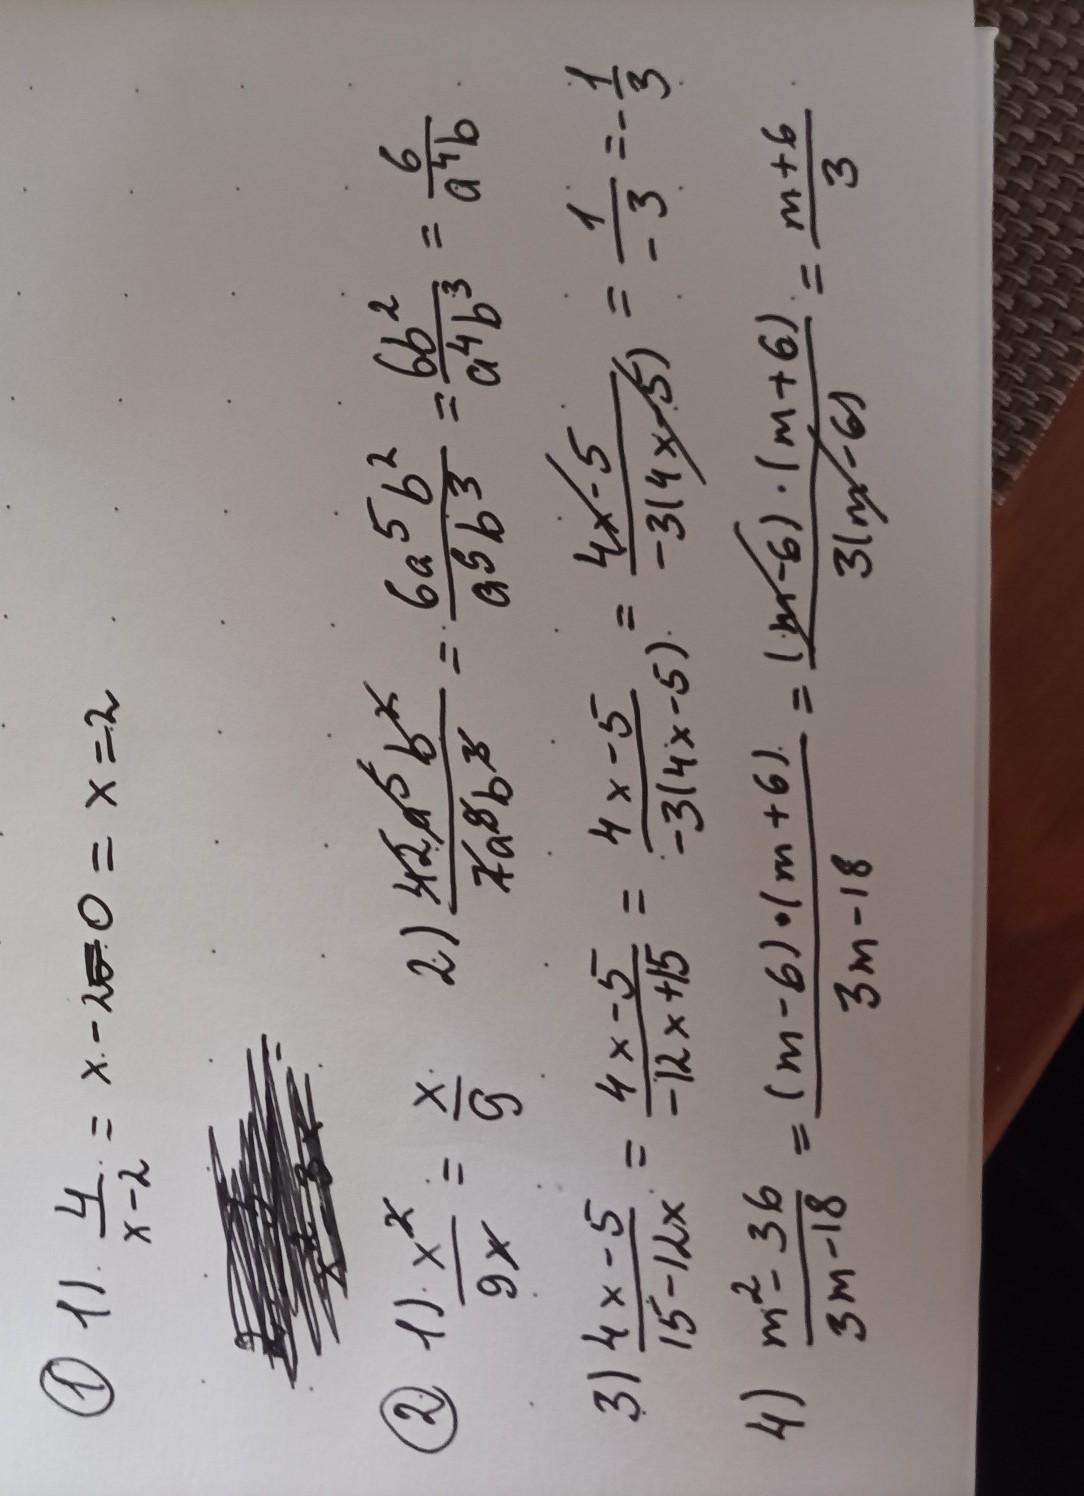 ① 1) 4/(x-2) = x-2 0 = x=2
② 1) x²/9x = x/9 2) 42a⁵b²/7a⁹b³ = 6a⁵b²/a⁹b³ = 6b²/a⁴b³ = 6/a⁴b
3) (4x-5)/(15-12x) = (4x-5)/(-12x+15) = (4x-5)/(-3(4x-5)) = (4x-5)/(-3(4x-5)) = 1/-3 = -1/3
4) (m²-36)/(3m-18) = (m-6)·(m+6)/(3m-18) = (m-6)·(m+6)/3(m-6) = (m+6)/3